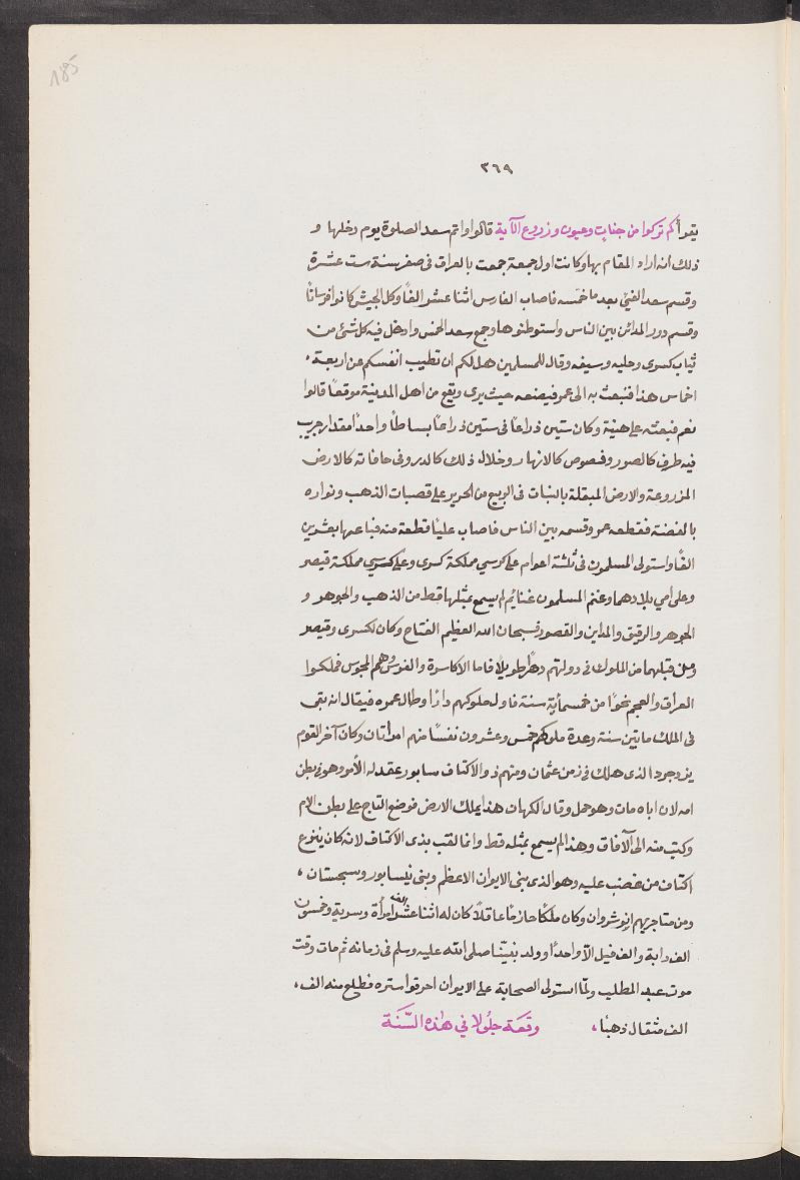 185
٣٦٩
يقرأ كم تركوا من جنات وعيون وزروع الآية قالوا واتم سعد الصلوة يوم دخلها و
ذلك انه اراد المقام بها وكانت اول جمعة جمعت بالعراق فى صفر سنة ست عشرة
وقسم سعد الفئ بعد ما خمسه فاصاب الفارس اثنا عشر الفًا وكل الجيش كانوا فرسانًا
وقسم دور المدائن بين الناس واستوطنوها وجمع سعد الخمس وادخل فيه كل شئ من
ثياب كسرى وحليه وسيفه وقال للمسلمين هل لكم ان تطيب انفسكم عن اربعة،
اخماس هذا فنبعث به الى عمر فيضعه حيث يرى ويقع من اهل المدينة موقعًا قالوا
نعم فبعثه على هيئة وكان ستين ذراعًا فى ستين ذراعًا بساطًا واحدًا مقدار جريب
فيه طرف كالصور وفصوص كالانهار وخلال ذلك كالدر وفى حافاته كالارض
المزروعة والارض المبقلة بالنبات فى الربيع من الحرير على قصبات الذهب ونواره
بالفضة فقطعه عمر وقسمه بين الناس فاصاب عليًا قطعة منه فباعها بعشرين
الفًا واستولى المسلمون فى ثلثة اعوام على كرسي مملكة كسرى وعلى كرسي مملكة قيصر
وعلى امي بلادهما وغنم المسلمون غنايم لم يسمع بمثلها قط من الذهب والجوهر و
الجوهر والرقيق والمداين والقصور فسبحان الله العظيم الفتاح وكان لكسرى وقيصر
ومن قبلهما من الملوك فى دولتهم دهرًا طويلًا فاما الاكاسرة والفرس وهم المجوس فملكوا
العراق والعجم نحوًا من خمسمأية سنة فاول ملوكهم دارا وطال عمره فيقال انه بقى
فى الملك مايتين سنة وعدة ملوكهم خمس وعشرون نفسًا منهم امراتان وكان آخر القوم
يزدجرد الذى هلك فى زمن عثمان ومنهم ذو الاكتاف سابور عقد له الأمر وهو فى بطن
امه لان اباه مات وهو حمل وقال الكهان هذا يملك الارض فوضع التاج على بطن الام
وكتب منه الى الآفاق وهذا لم يسمع بمثله قط وانما لقب بذى الاكتاف لانه كان ينزع
اكتاف من غضب عليه وهو الذى بنى الايوان الاعظم وبنى نيسابور وسجستان،
ومن متاخريهم انوشروان وكان ملكًا حازمًا عاقلًا كان له اثنا عشر الف امرأة وسرية وخمسون
الف دابة والف فيل الّا واحدًا وولد نبينا صلى الله عليه وسلم فى زمانه ثم مات وقت
موت عبد المطلب ولمّا استولى الصحابة على الايوان احرقوا ستره فطلع منه الف،
الف مثقال ذهبًا، وقعة جلُولا في هٰذه السّنَة